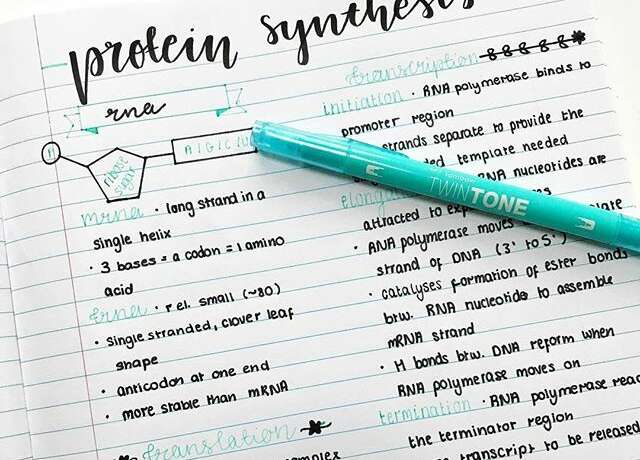 protein synthesis
rna
ribose
sugar
A|G|C|U
mrna · long strand in a
single helix
· 3 bases = a codon = 1 amino
acid
trna · rel. small (~80)
· single stranded, clover leaf
shape
· anticodon at one end
· more stable than mRNA
translation
complex
transcription
initiation · RNA polymerase binds to
promoter region
strands separate to provide the
template needed
RNA nucleotides are
attracted to
· RNA polymerase moves
strand of DNA (3' to 5')
· catalyses formation of ester bonds
btw. RNA nucleotide to assemble
mRNA strand
· H bonds btw. DNA reform when
RNA polymerase moves on
termination · RNA polymerase
the terminator region
transcript to be released
Tombow
TWINTONE